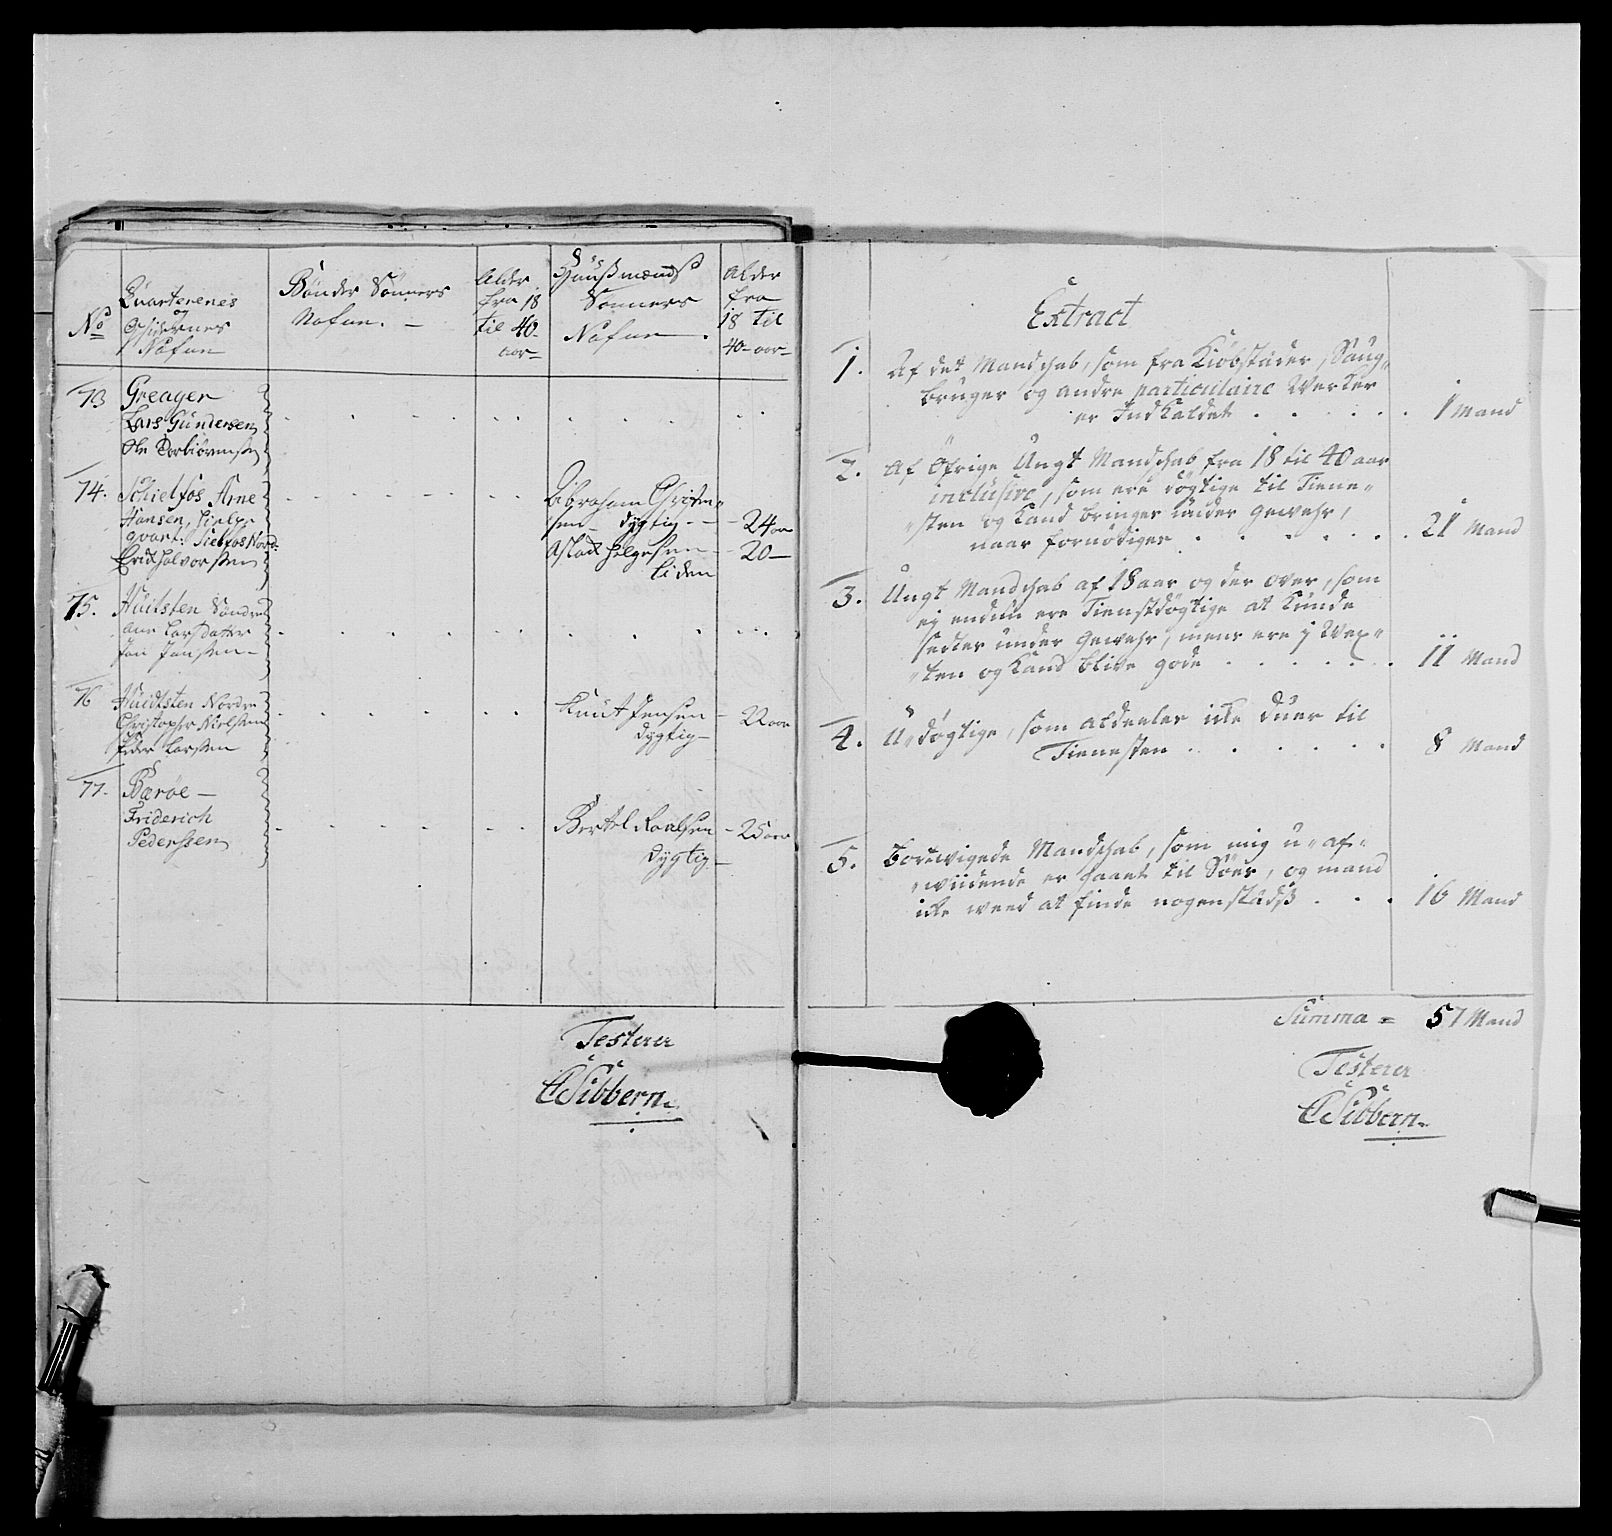 No
Quarterenes
og
Gesidernes
Nafne
Bønder Sønners
Nafne. -
Alder
fra 18
til 40
aar
Huusmænds
Sønners
Nafne.
Alder
fra
18 til
40 aar
73
Greager
Lars Gundersen
Ole Torbiørnsen
74.
Schielfos Arne
Hansen, hielpe
qvart: Sielfos Nord:
Erick Halvorsen
Abraham Christen-
sen - dygtig - - 24 aar
Aslack Helgesen - 20 -
liden
75.
Huitsten Søndre
Ane Larsdatter
Jan Jansen -
76
Huidtsten Nordre
Christopher Nielsen
Peder Larsen
Knut Jensen - 22 aar
dygtig -
77.
Barøe -
Friderich
Pederssen
Bertel Roalsen - 25 aar
dygtig -
Testerer
C Sibbern.
Extract
1. Af det Mandskab, som fra Kiøbstæder, Saug-
bruger og andre particulaire Werker
er Indkaldet . . . . . 1 Mand
2. Af Øfrige Ungt Mandskab fra 18 til 40 aar
inclusive, som ere døgtige til Tiene-
sten og kand bringes under Gewehr,
naar fornødiges . . . . . 21 Mand
3. Ungt Mandskab af 18 aar og der over, som
ej endnu ere Tienstdøgtige at kunde
settes under Gewehr, mens ere j Wex-
ten og kand blive gode . . . . . 11 Mand
4. U-døgtige, som aldeeles icke duer til
Tienesten . . . . . 8 Mand
5. Bortvigede Mandskab, som mig u-af-
wiidende er gaaet til Søes, og mand
icke weed at finde nogenstæds . . . 16 Mand
Summa = 57 Mand
Testerer
C Sibbern.